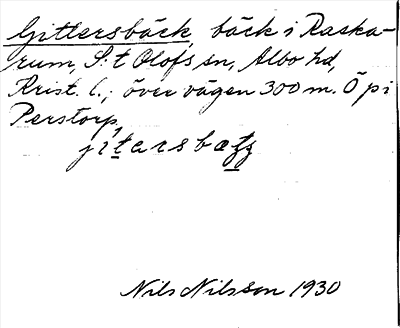 Gittersbäck, bäck i Raska-
rum, S:t Olofs sn, Albo hd,
Krist. l.; över vägen 300 m. Ö p i
Perstorp,
Nils Nilsson 1930